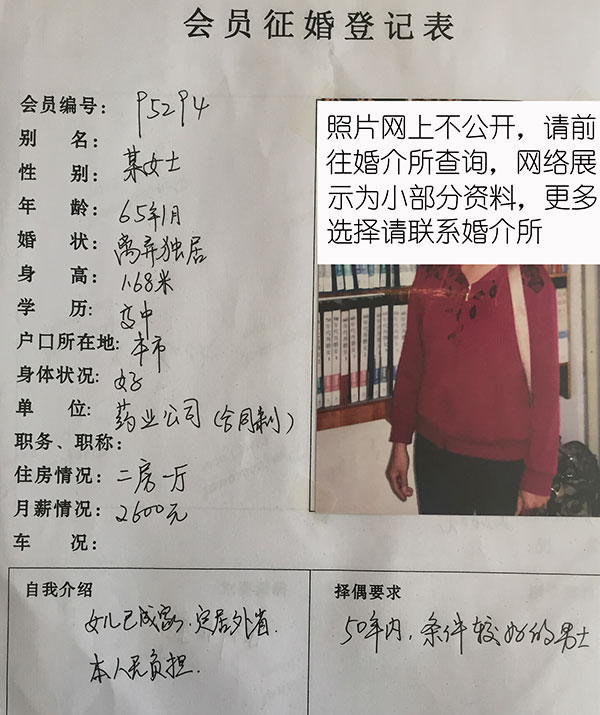 会员征婚登记表
会员编号: P5294
别 名:
性 别: 某女士
年 龄: 65年1月
婚 状: 离异独居
身 高: 1.68米
学 历: 高中
户口所在地: 本市
身体状况: 好
单 位: 药业公司(合同制)
职务、职称:
住房情况: 二房一厅
月薪情况: 2600元
车 况:
照片网上不公开，请前
往婚介所查询，网络展
示为小部分资料，更多
选择请联系婚介所
自我介绍
女儿已成家、定居外省.
本人无负担.
择偶要求
50年内，条件较好的男士